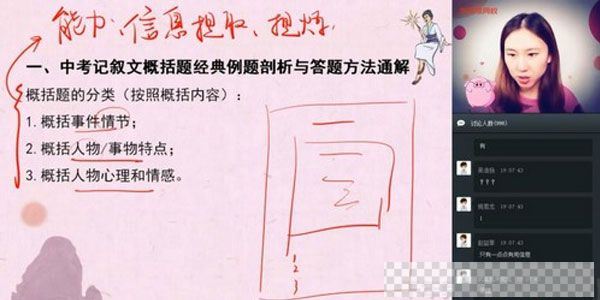 能力：信息提取、提炼
一、中考记叙文概括题经典例题剖析与答题方法通解
概括题的分类（按照概括内容）：
1.概括事件情节；
2.概括人物/事物特点；
3.概括人物心理和情感。
1
2
3
有
19:07:43
？？？
19:07:43
1
赵喆菲 19:07:43
只有一点点有用信息